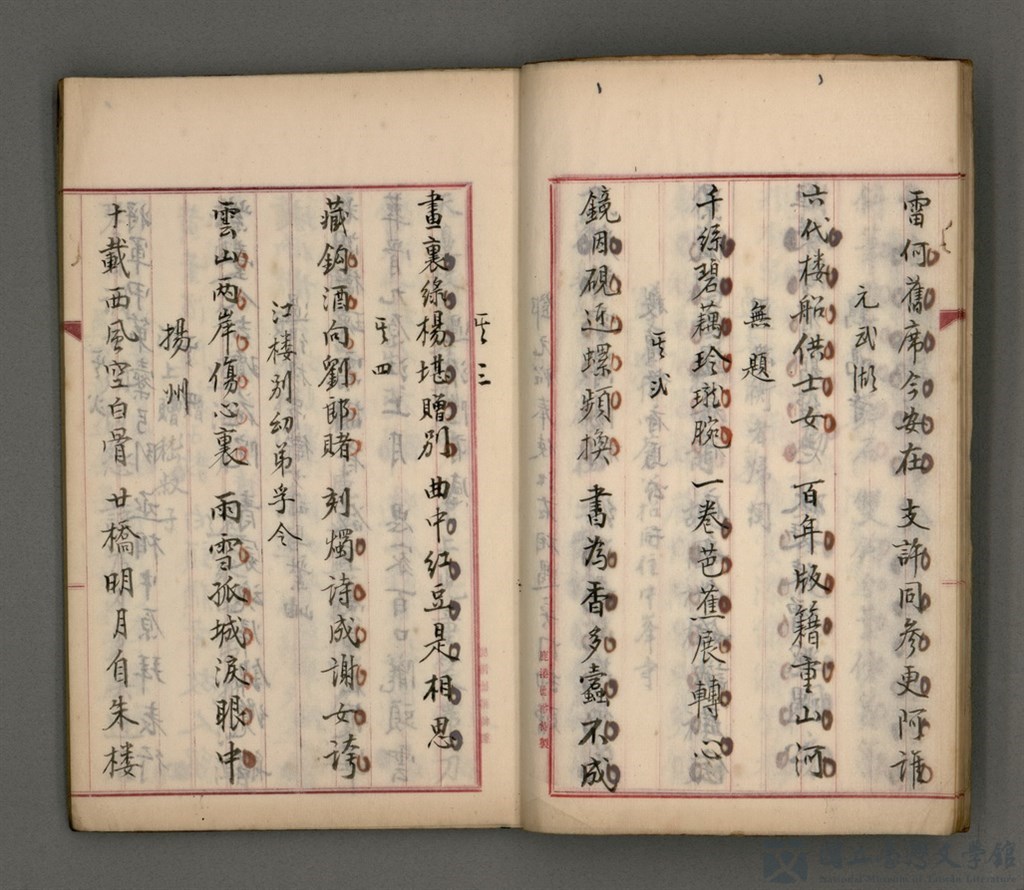 雷何舊席今安在 支許同參更阿誰
元武湖
六代樓船供士女 百年版籍重山河
無題
千絲碧藕玲瓏腕 一卷芭蕉展轉心
其弍
鏡因硯近螺頻換 書為香多蠹不成
其三
畫裏綠楊堪贈別 曲中紅豆是相思
其四
藏鈎酒向劉郎賭 刻燭詩成謝女誇
江楼別幼弟孚令
雲山两岸傷心裏 雨雪孤城淚眼中
揚州
十載西風空白骨 廿橋明月自朱楼
國立台灣文學館
National Museum of Taiwan Literature